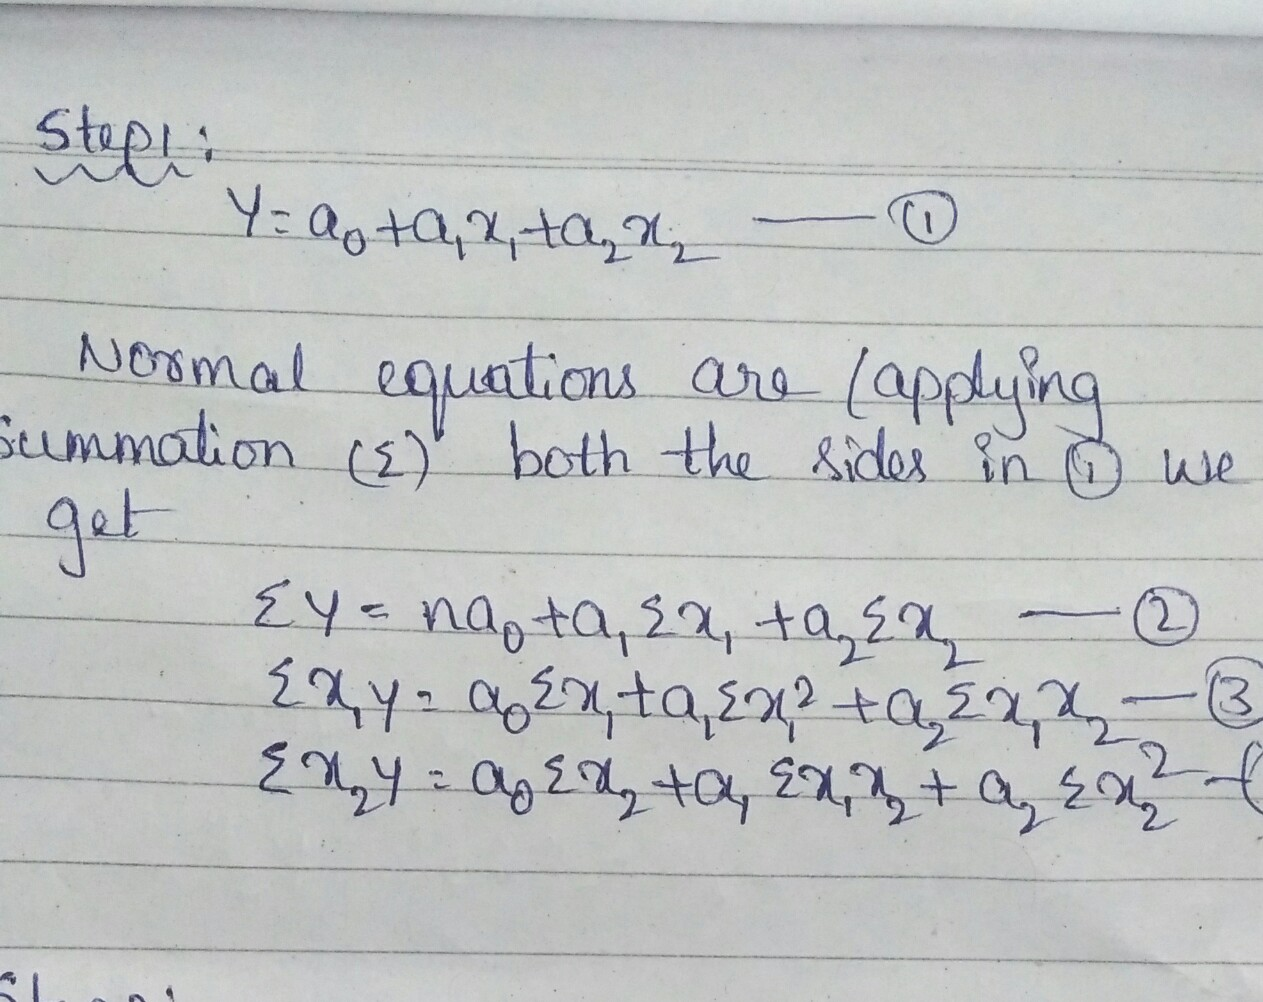 Step1:
Y = a₀ + a₁x₁ + a₂x₂ —— ①
Normal equations are (applying
summation (Σ) both the sides in ① we
get
ΣY = na₀ + a₁Σx₁ + a₂Σx₂ —— ②
Σx₁y = a₀Σx₁ + a₁Σx₁² + a₂Σx₁x₂ — ③
Σx₂y = a₀Σx₂ + a₁Σx₁x₂ + a₂Σx₂² — (